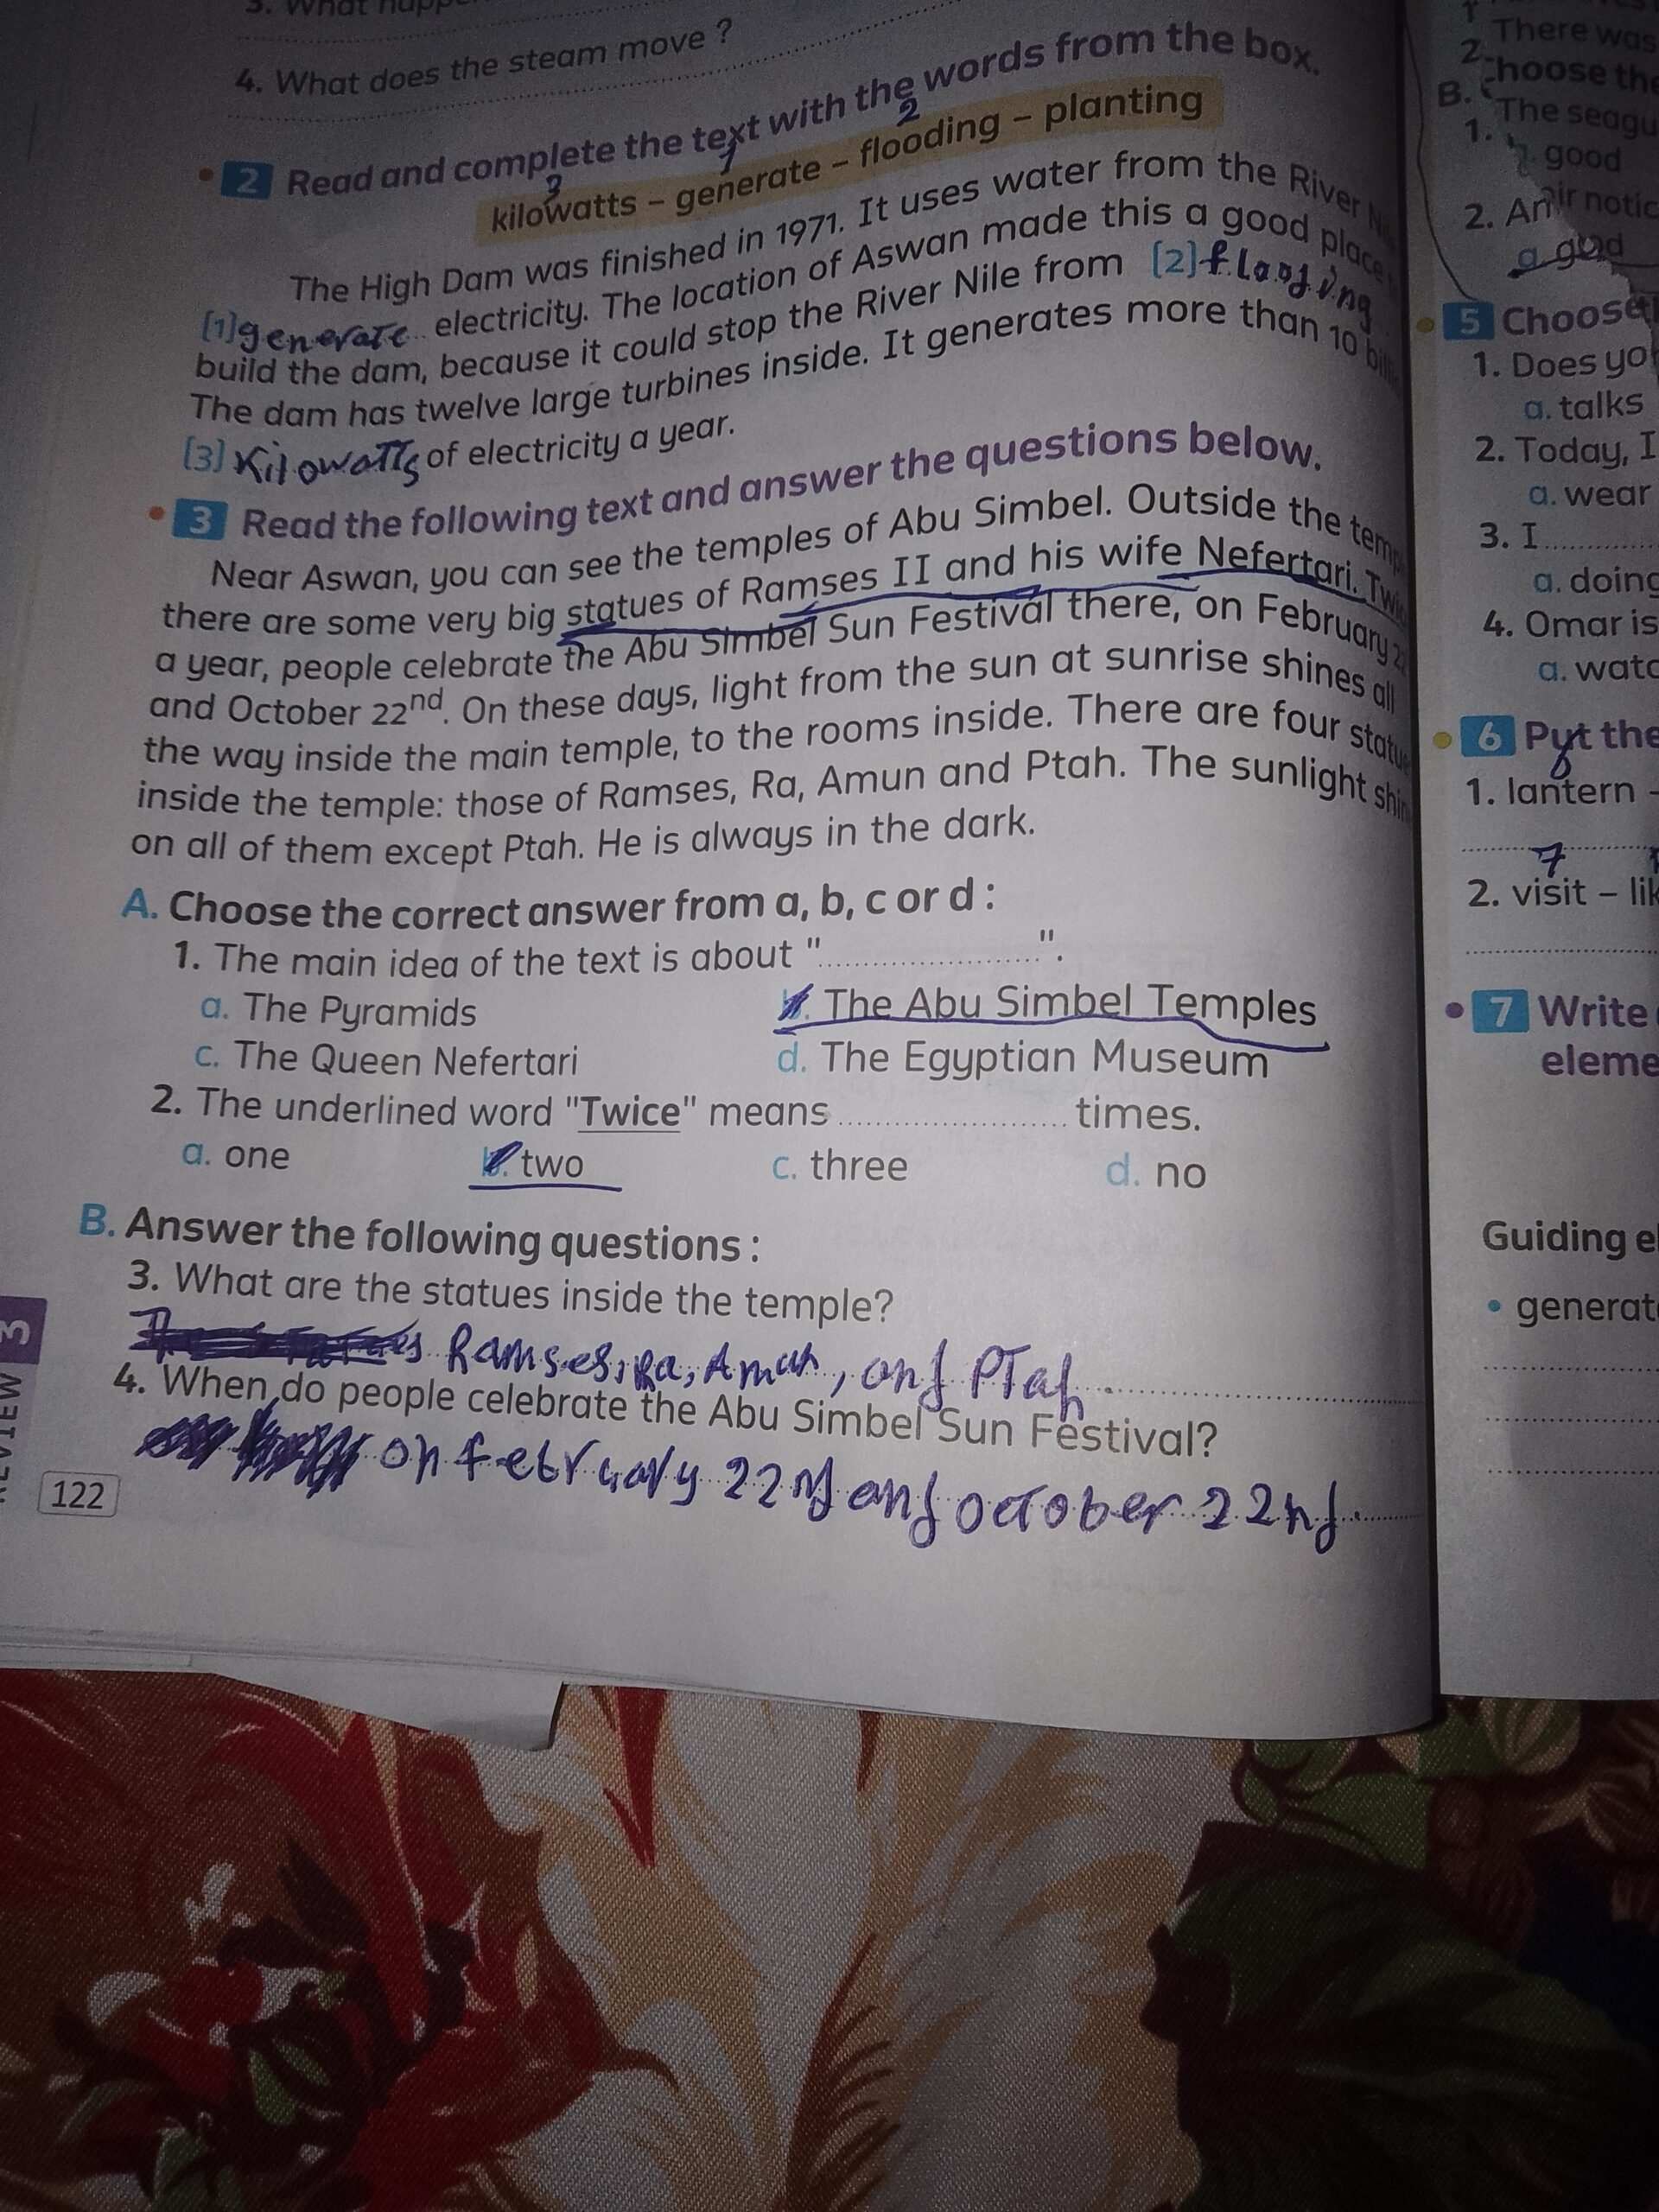 3. What
4. What does the steam move ?
2 Read and complete the text with the words from the box.
3 1 2
kilowatts – generate – flooding – planting
The High Dam was finished in 1971. It uses water from the River
[1] generate electricity. The location of Aswan made this a good place
build the dam, because it could stop the River Nile from [2]
The dam has twelve large turbines inside. It generates more than 10
[3] Kilowatts of electricity a year.
3 Read the following text and answer the questions below.
Near Aswan, you can see the temples of Abu Simbel. Outside the
there are some very big statues of Ramses II and his wife Nefertari.
a year, people celebrate the Abu Simbel Sun Festival there, on February
and October 22nd. On these days, light from the sun at sunrise shines all
the way inside the main temple, to the rooms inside. There are four
inside the temple: those of Ramses, Ra, Amun and Ptah. The sunlight
on all of them except Ptah. He is always in the dark.
A. Choose the correct answer from a, b, c or d :
1. The main idea of the text is about "....................".
a. The Pyramids b. The Abu Simbel Temples
c. The Queen Nefertari d. The Egyptian Museum
2. The underlined word "Twice" means .................... times.
a. one b. two c. three d. no
B. Answer the following questions :
3. What are the statues inside the temple?
Ramses, Ra, Amun, and Ptah.
4. When do people celebrate the Abu Simbel Sun Festival?
on february 22nd and october 22nd.
REVIEW 3
122
There was
2. Choose the
B. The
1.
2. good
2. An
a. god
5 Choose
1. Does
a. talks
2. Today, I
a. wear
3. I
a. doing
4. Omar is
a.
6 Put the
1. lantern –
7
2. visit –
7 Write
Guiding
•